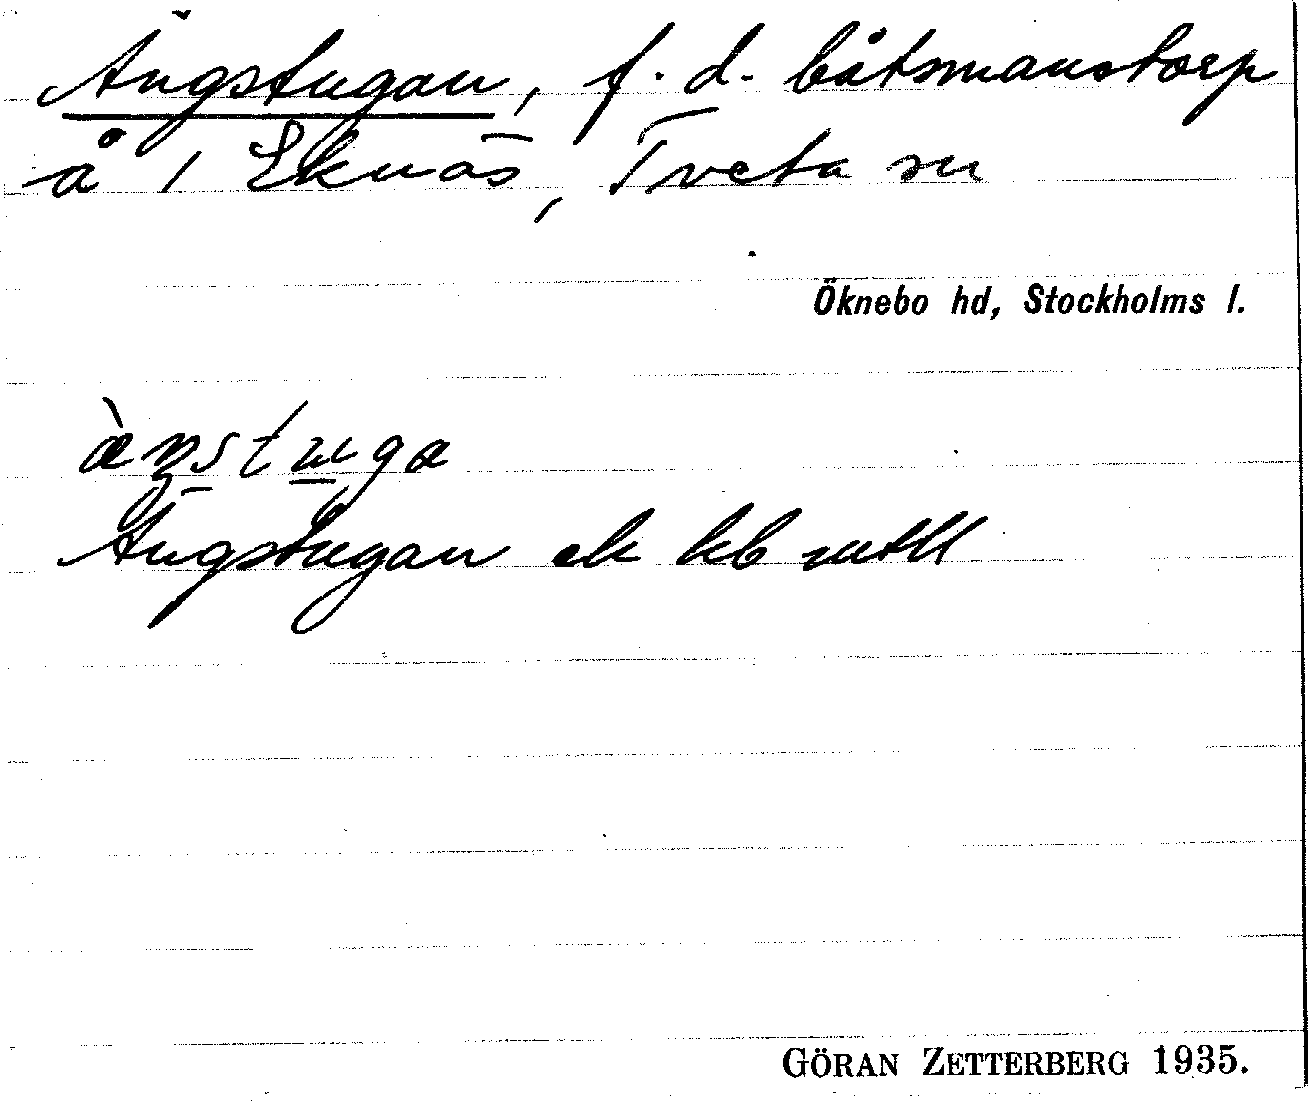 Ängstugan, f. d. båtsmanstorp
å 1 Eknäs, Tveta sn
Öknebo hd, Stockholms l.
æ̀ŋstuga
Ängstugan ek kb mtll
GÖRAN ZETTERBERG 1935.